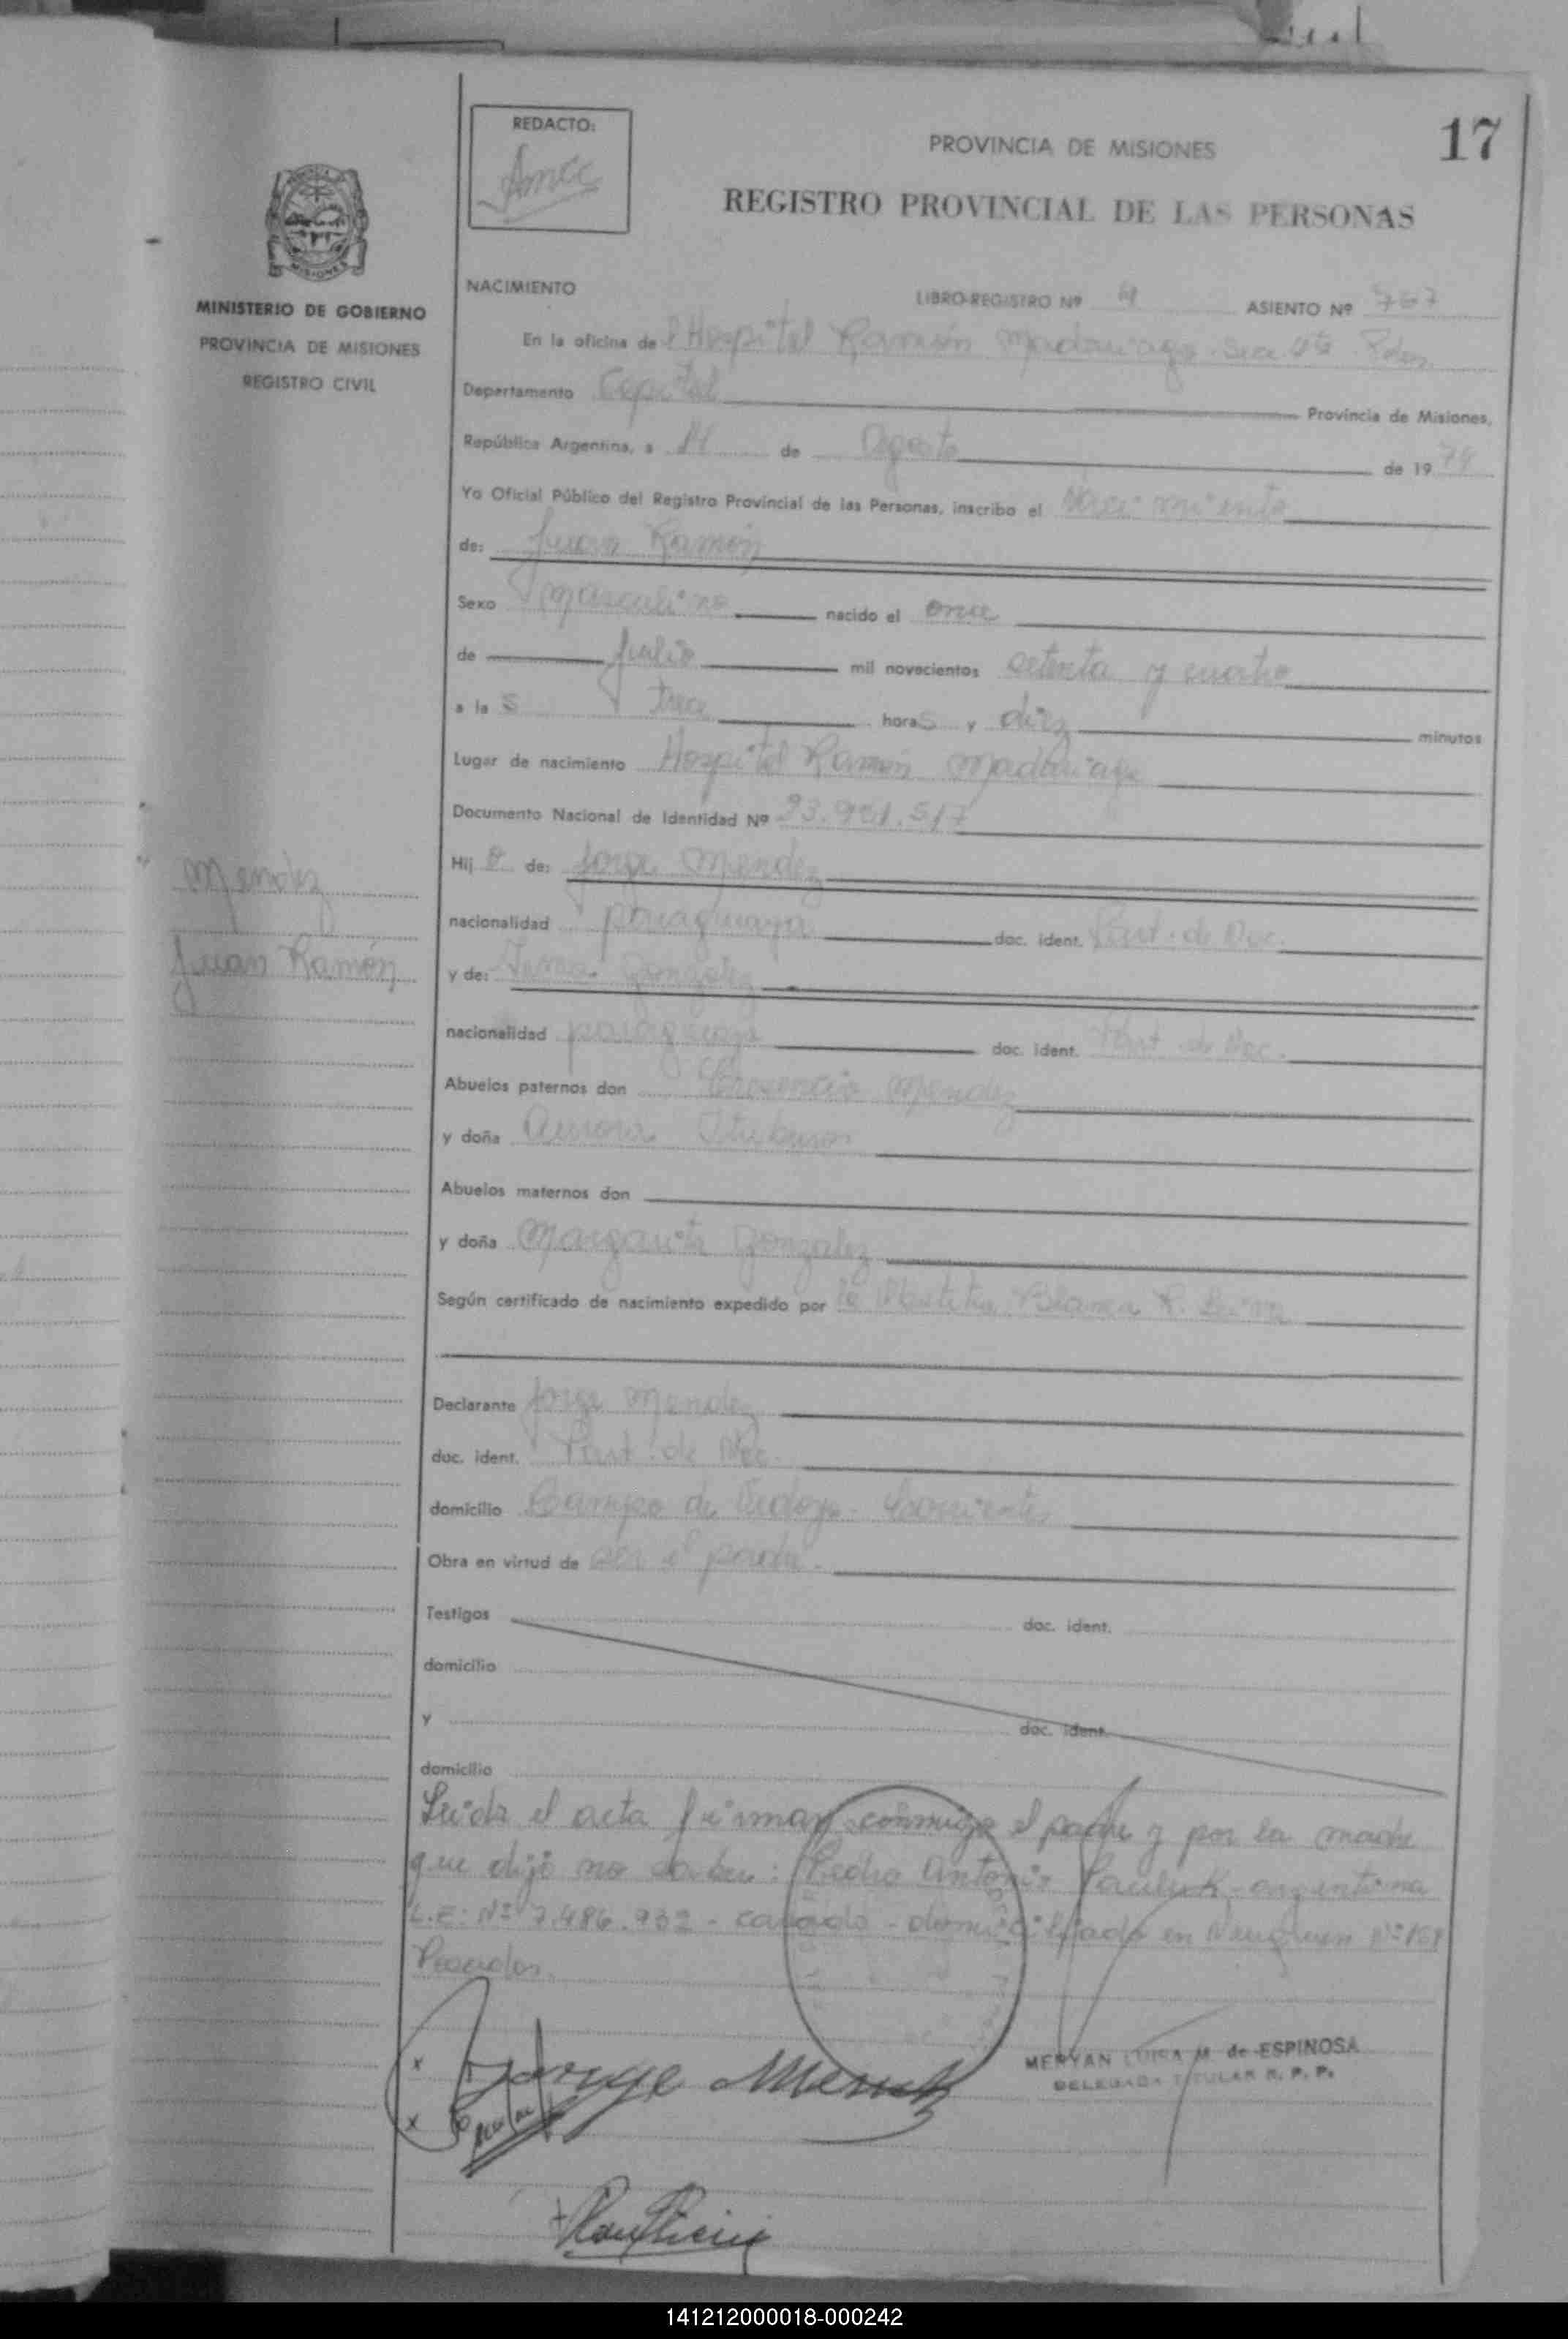 17
REDACTO:
PROVINCIA DE MISIONES
REGISTRO PROVINCIAL DE LAS PERSONAS
MISIONES
MINISTERIO DE GOBIERNO
PROVINCIA DE MISIONES
REGISTRO CIVIL
NACIMIENTO LIBRO-REGISTRO Nº 4 ASIENTO Nº 767
En la oficina del Hospital Ramón Madariaga
Departamento Capital Provincia de Misiones,
República Argentina, a 14 de Agosto de 1974
Yo Oficial Público del Registro Provincial de las Personas, inscribo el Nacimiento
de: Juan Ramón
Sexo masculino nacido el once
de julio mil novecientos setenta y cuatro
a las trece horas y diez minutos
Lugar de nacimiento Hospital Ramón Madariaga
Documento Nacional de Identidad Nº
Hijo de: Jorge Mendez
Mendez
nacionalidad paraguaya doc. ident. Part. de Nac.
Juan Ramón
y de: Gonzalez
nacionalidad paraguaya doc. ident. Part. de Nac.
Abuelos paternos don Mendez
y doña Aurora
Abuelos maternos don
y doña Margarita Gonzalez
Según certificado de nacimiento expedido por la Blanca R.
Declarante Jorge Mendez
doc. ident. Part. de Nac.
domicilio Campo de Corrientes
Obra en virtud de ser el padre.
Testigos doc. ident.
domicilio
y doc. ident.
domicilio
Leida el acta firman conmigo el padre y por la madre
que dijo no saber: Pedro Antonio Pauluk - argentina
L.E. Nº 7.486.932 - casado - domiciliado en Neuquen Nº
Posadas.
x Jorge Mendez
x
MERYAN LUISA M. de ESPINOSA
DELEGADA TITULAR R. P. P.
141212000018-000242